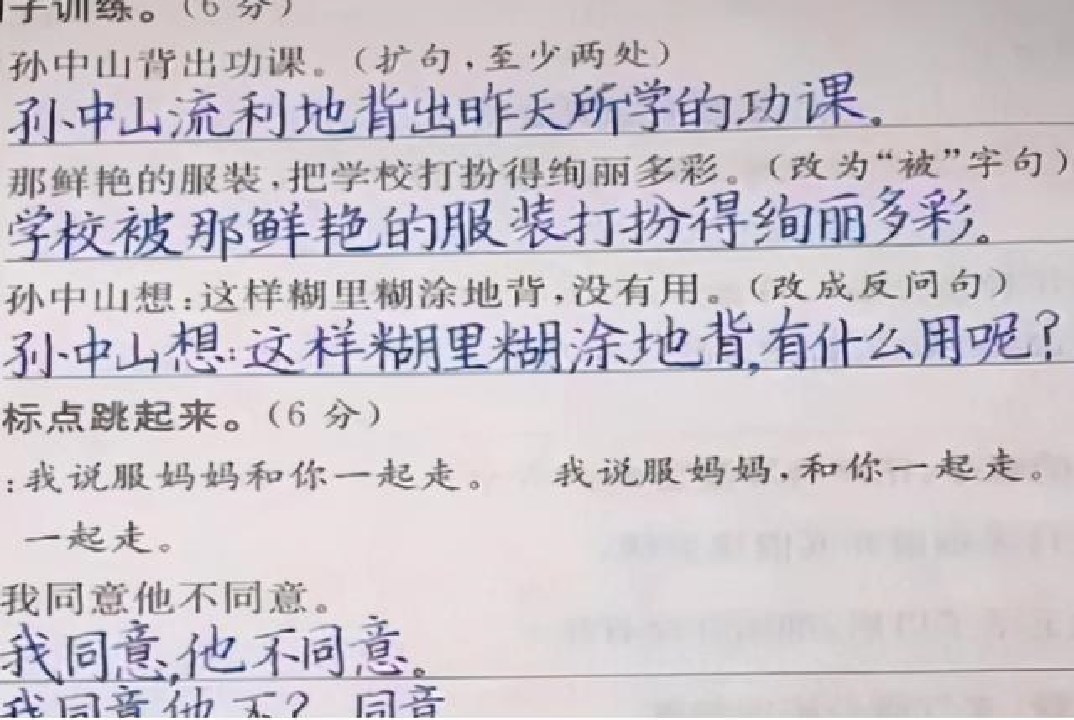 子训练。(6 分)
孙中山背出功课。(扩句,至少两处)
孙中山流利地背出昨天所学的功课。
那鲜艳的服装,把学校打扮得绚丽多彩。(改为“被”字句)
学校被那鲜艳的服装打扮得绚丽多彩。
孙中山想:这样糊里糊涂地背,没有用。(改成反问句)
孙中山想:这样糊里糊涂地背,有什么用呢?
标点跳起来。(6 分)
:我说服妈妈和你一起走。 我说服妈妈,和你一起走。
一起走。
我同意他不同意。
我同意,他不同意。
我同意他不? 同意